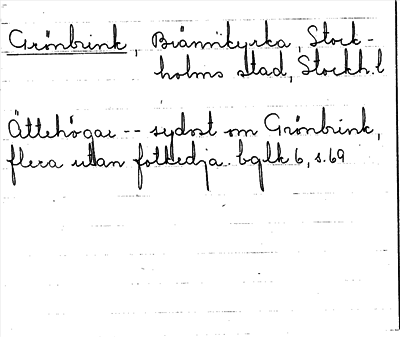 Grönbrink, Brännkyrka, Stock-
holms stad, Stockh.l
Ättehögar -- sydost om Grönbrink,
flera utan fotkedja. bglk 6, s.69